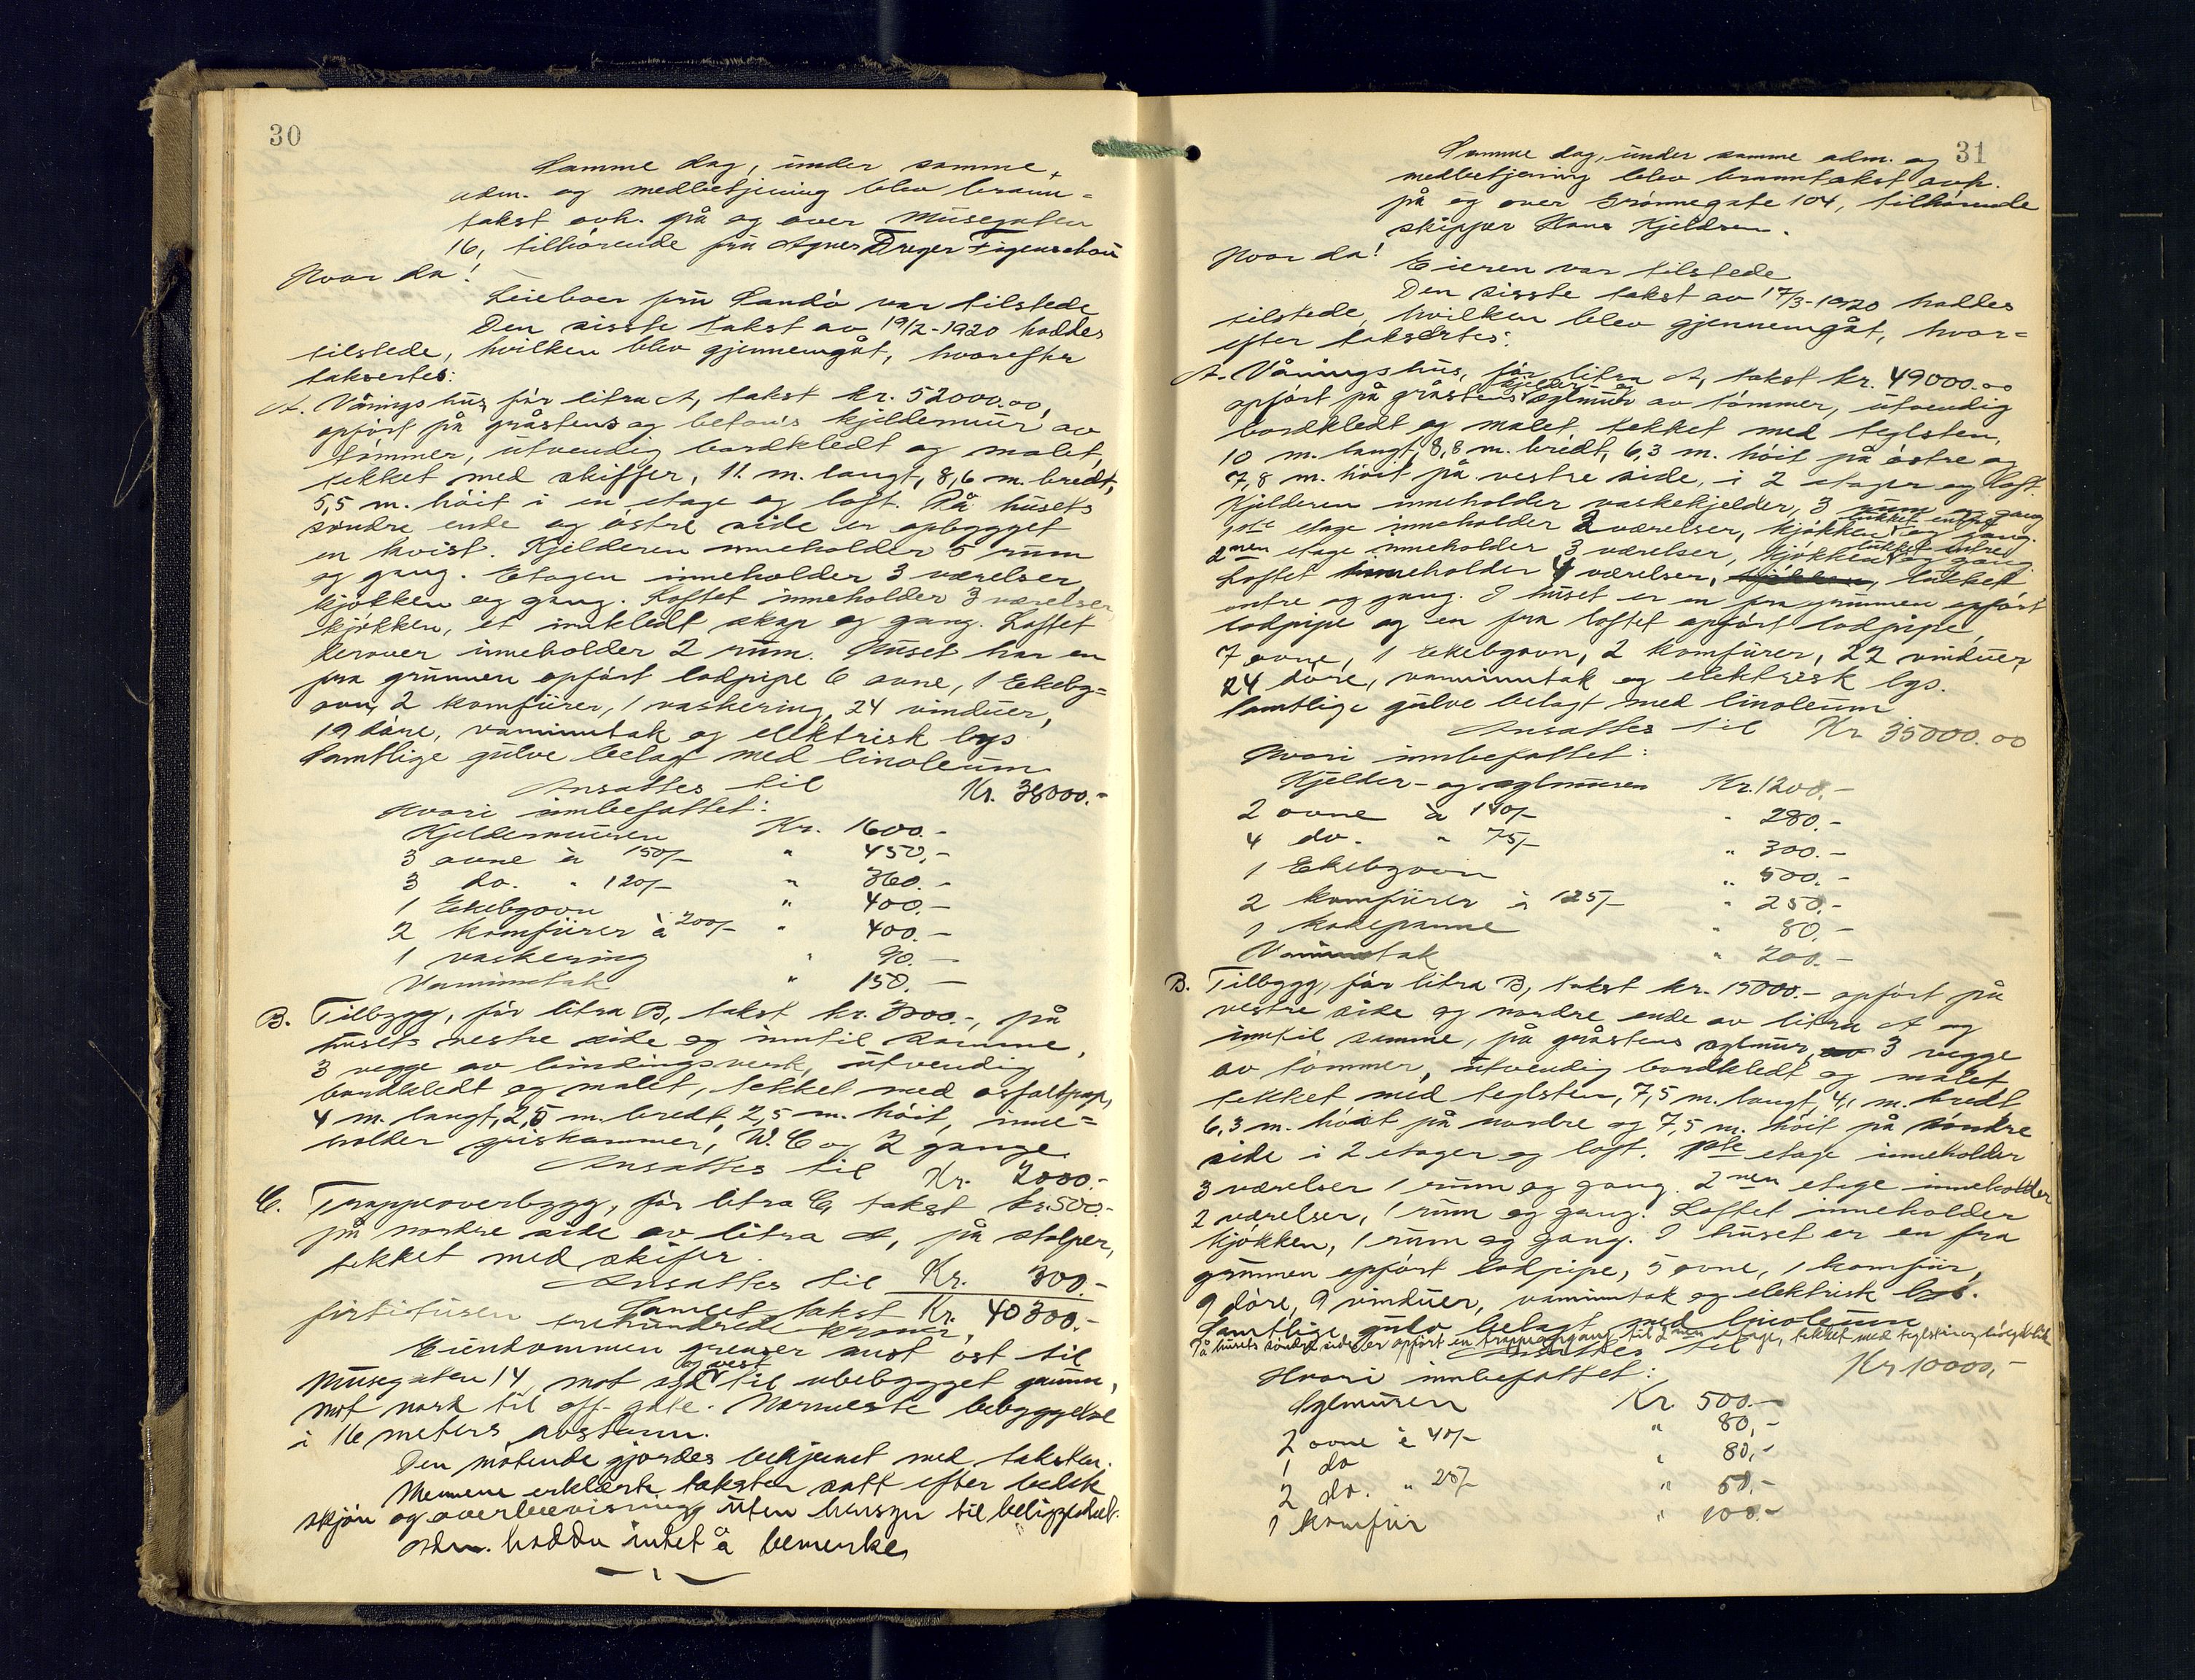 30
Samme dag, under samme
adm. og medbetjening blev brann-
takst avh. på og over Musegaten
16, tilhörende fru Agnes Dreyer Figenschou
Hvor da!
Leieboer fru Sandö var tilstede
Den sisste takst av 19/2-1920 haddes
tilstede, hvilken blev gjennemgåt, hvorefter
taksertes:
A. Våningshus, før litra A, takst kr. 52000.00,
opfört på gråstens og betons kjeldermur av
tömmer, utvendig bordkledt og malet,
tekket med skiffer, 11. m. langt, 8,6 m. bredt,
5,5 m. höit i en etage og loft. På husets
söndre ende og östre side er opbygget
en kvist. Kjelderen inneholder 5 rum
og gang. Etagen inneholder 3 værelser,
kjökken og gang. Loftet inneholder 3 værelser
kjökken, et innkledt skap og gang. Loftet
derover inneholder 2 rum. Huset har en
fra grunnen opfört lodpipe 6 ovne, 1 Ekeby-
ovn, 2 komfürer, 1 vaskering, 24 vinduer,
19 döre, vanninntak og elektrisk lys
Samtlige gulve belagt med linoleum
Ansattes til Kr. 38000.-
Hvori innbefattet:
Kjeldermuren Kr. 1600.-
3 ovne à 150/- " 450.-
3 do. " 120/- " 360.-
1 Ekebyovn " 400.-
2 komfürer à 200/- " 400.-
1 vaskering " 90.-
Vanninntak " 150.-
B. Tilbygg, før litra B, takst kr. 3200.-, på
husets vestre side og inntil samme,
3 vegge av bindingsverk, utvendig
bordkledt og malet, tekket med asfaltpap,
4 m. langt, 2,5 m. bredt, 2,5 m. höit, inne-
holder spiskammer, W.C og 2 gange.
Ansattes til Kr. 2000.-
C. Trappeoverbygg, før litra C, takst kr. 500.-
på nordre side av litra A, på stolper,
tekket med skifer.
Ansattes til Kr. 300.-
Samlet takst Kr. 40300.-
firtitusen trehundrede kroner,
Eiendommen grenser mot öst til
Musegaten 14, mot syd og vest til ubebygget grunn,
mot nord til off. gate. Nærmeste bebyggelse
i 16 meters avstann.
Den mötende gjordes bekjennt med taksten.
Mennene erklærte taksten satt efter bedste
skjön og overbevisning uten hensyn til beliggenhet.
Adm. hadde intet å bemerke
31
Samme dag, under samme adm. og
medbetjening blev branntakst avh.
på og over Grönnegate 104, tilhörende
skipper Hans Kjeldsen.
Hvor da!
Eieren var tilstede
Den sisste takst av 17/3-1920 haddes
tilstede, hvilken blev gjennemgåt, hvor-
efter taksertes:
A. Våningshus, før litra A, takst kr. 49000.00
opfört på gråstens kjelder- og sylmur av tömmer, utvendig
bordkledt og malet, tekket med teglsten,
10 m. langt, 8,8 m. bredt, 6,3 m. höit på östre og
7,8 m. höit på vestre side, i 2 etager og loft.
Kjelderen inneholder vaskekjelder, 3 rum og gang
1ste etage inneholder 2 værelser, kjökken, lukket entre og gang.
2nen etage inneholder 3 værelser, kjökken, lukket entre og gang
Loftet inneholder 4 værelser, lukket
entre og gang. I huset er en fra grunnen opfört
lodpipe og en fra loftet opfört lodpipe,
7 ovne, 1 Ekebyovn, 2 komfürer, 22 vinduer,
24 döre, vanninntak og elektrisk lys.
Samtlige gulve belagt med linoleum
Ansattes til Kr 35000.00
Hvori innbefattet:
Kjelder- og sylmuren Kr. 1200.-
2 ovne à 140/- " 280.-
4 do. " 75/- " 300.-
1 Ekebyovn " 500.-
2 komfürer à 125/- " 250.-
1 kokepanne " 80.-
Vanninntak " 200.-
B. Tilbygg, før litra B, takst kr. 15000.- opfört på
vestre side og nordre ende av litra A og
inntil samme, på gråstens sylmur, 3 vegge
av tömmer, utvendig bordkledt og malet
tekket med teglsten, 7,5 m. langt, 4,1 m. bredt
6,3 m. höit på nordre og 7,5 m. höit på söndre
side i 2 etager og loft. 1ste etage inneholder
3 værelser 1 rum og gang. 2nen etage inneholder
2 værelser, 1 rum og gang. Loftet inneholder
kjökken, 1 rum og gang. I huset er en fra
grunnen opfört lodpipe, 5 ovne, 1 komfür,
9 döre, 9 vinduer, vanninntak og elektrisk lys.
Samtlige gulv belagt med linoleum
På husets söndre side er opfört en trappeopgang til 2nen etage, tekket med teglsten og
Ansattes til Kr 10000,-
Hvori innbefattet:
Sylmuren Kr. 500.-
2 ovne à 40/- " 80,-
1 do " 80,-
2 do. " 25/- " 50,-
1 komfür " 100.-